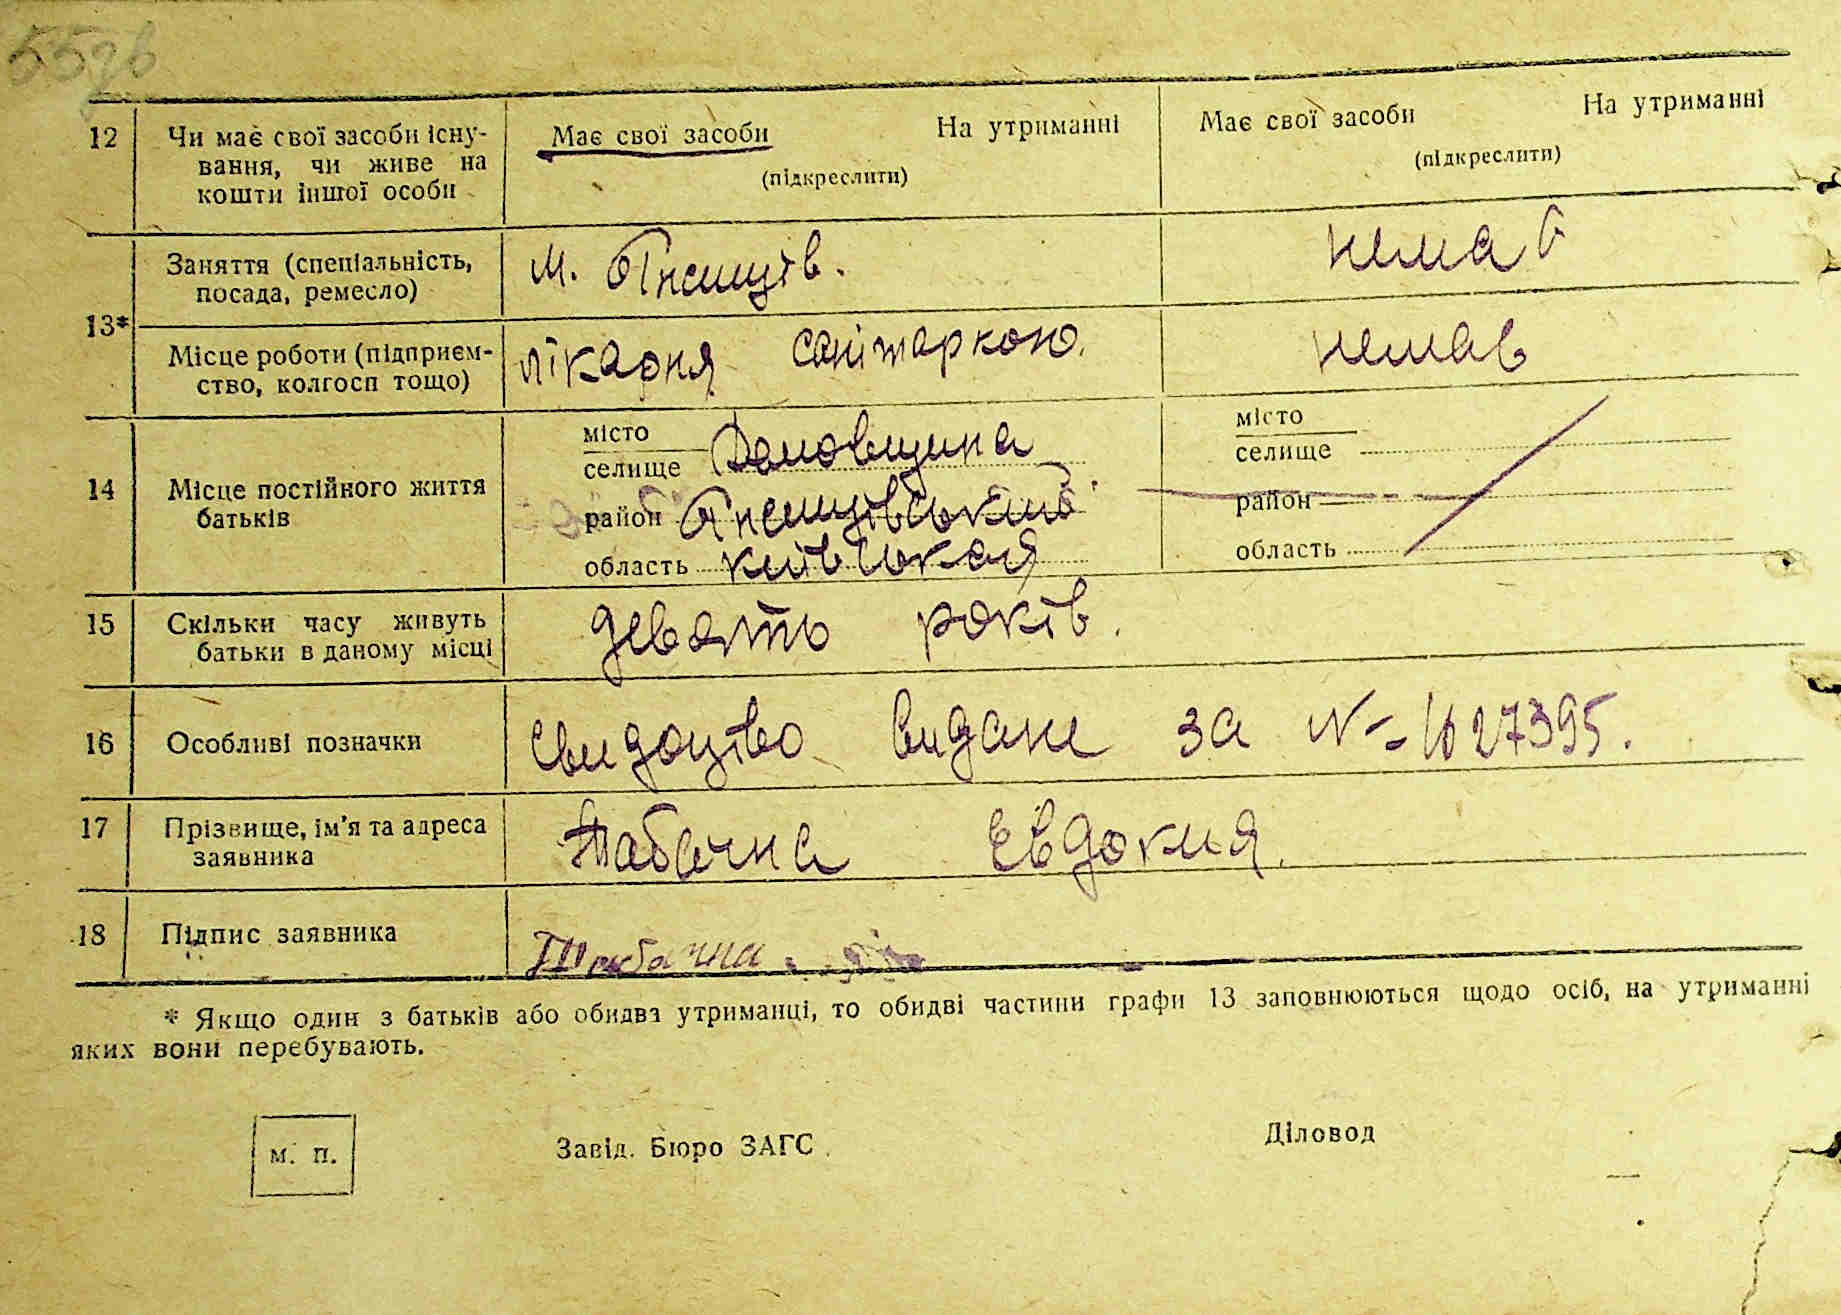 55зв
12 Чи має свої засоби існу-
вання, чи живе на
кошти іншої особи
Має свої засоби На утриманні
(підкреслити)
Має свої засоби На утриманні
(підкреслити)
13*
Заняття (спеціальність,
посада, ремесло)
м.
нема
Місце роботи (підприєм-
ство, колгосп тощо)
лікарня санітаркою.
немав
14 Місце постійного життя
батьків
місто
селище Домовщина
район
область київська
місто
селище
район
область
15 Скільки часу живуть
батьки в даному місці
девять років.
16 Особливі позначки
Свидоцтво видане за №
17 Прізвище, ім'я та адреса
заявника
Табачна Евдокия.
18 Підпис заявника
Табачна
* Якщо один з батьків або обидва утриманці, то обидві частини графи 13 заповнюються щодо осіб, на утриманні
яких вони перебувають.
м. п.
Завід. Бюро ЗАГС
Діловод